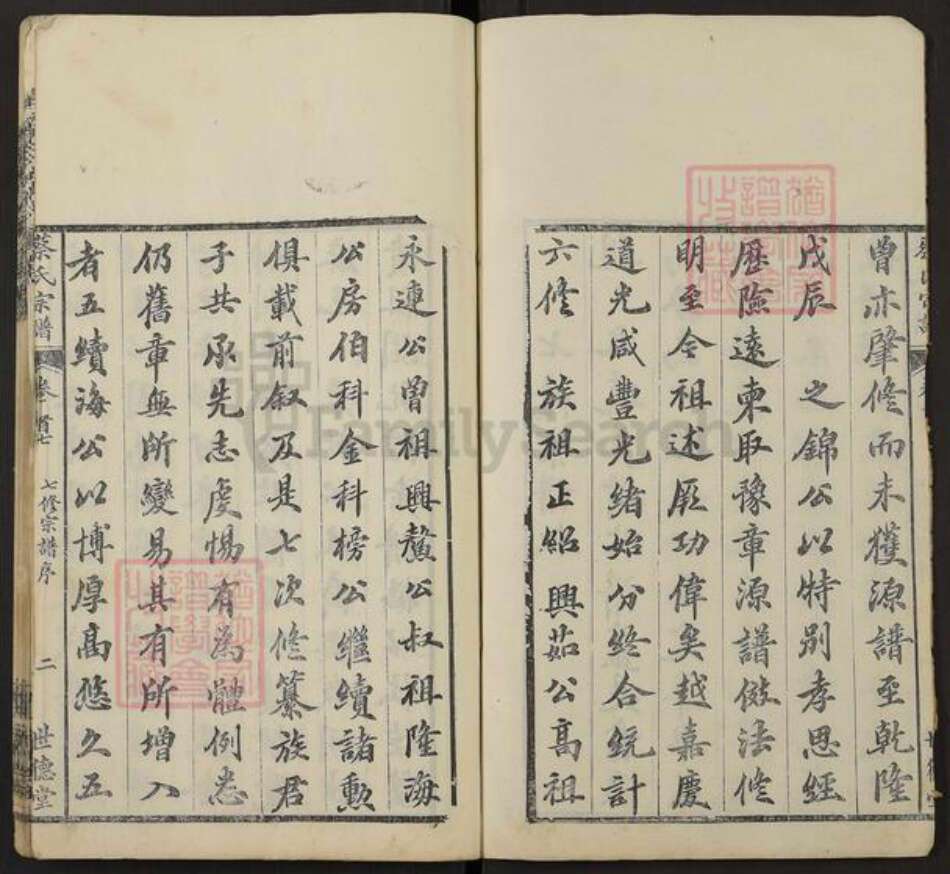 曾亦肇修而未獲源譜至乾隆
戊辰 之錦公以特別孝思經
歷險遠東取豫章源譜倣法修
明至今祖述厥功偉矣越嘉慶
道光咸豐光緒始分終合統計
六修 族祖正紹興茹公高祖
永連公曾祖興鰲公叔祖隆海
公房伯科金科榜公繼續諸勳
俱載前叙及是七次修纂族君
子共承先志虔惕有為體例悉
仍舊章無所變易其有所增入
者五續海公以博厚高悠久五
蔡氏宗譜 卷首七 七修宗譜序 二 世德堂
FamilySearch